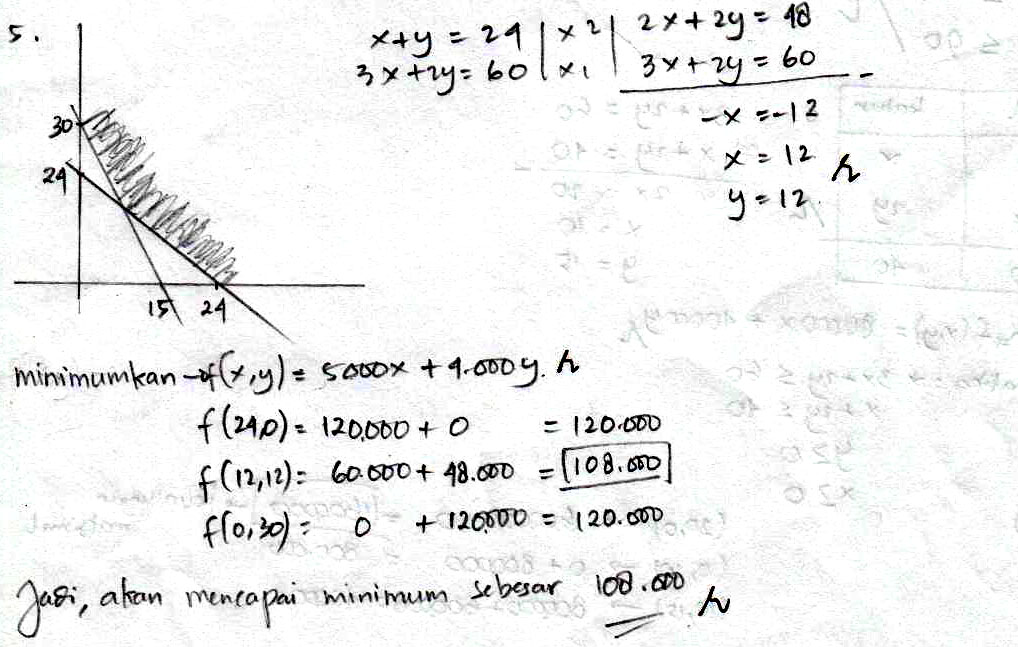 5.
x+y = 24 | x2 | 2x + 2y = 48
3x+2y = 60 | x1 | 3x + 2y = 60 -
-x = -12
x = 12
y = 12
30
24
15 24
minimumkan → f(x,y) = 5000x + 4.000y.
f(24,0) = 120.000 + 0 = 120.000
f(12,12) = 60.000 + 48.000 = 108.000
f(0,30) = 0 + 120.000 = 120.000
Jadi, akan mencapai minimum sebesar 108.000